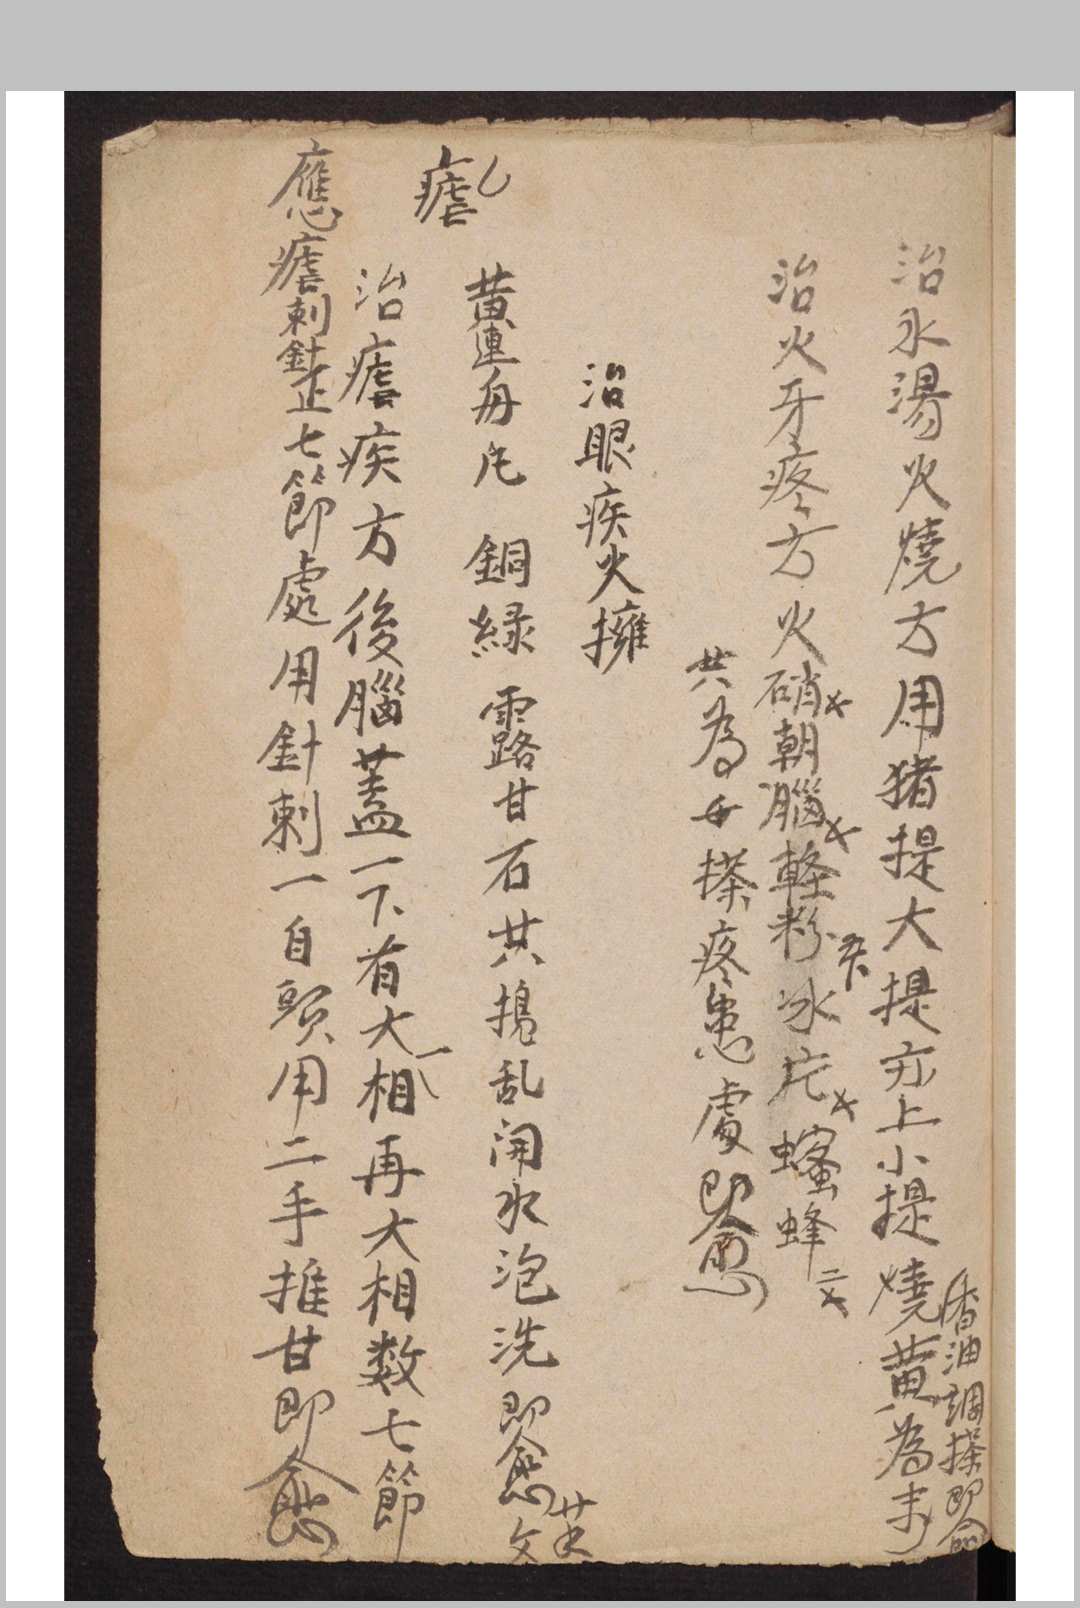 治水湯火燒方用猪提大提亦上小提燒黄為末
香油調搽即愈
治火牙疼方火硝朝腦輕粉冰片螥蜂
共為末搽疼患處即愈
治眼疾火擁
黄連舟片銅緑露甘石共搗乱開水泡洗即愈
瘧
治瘧疾方後腦蓋一下有大相再大相数七節
應瘧刺針止七節處用針刺一自頭用二手推甘即愈